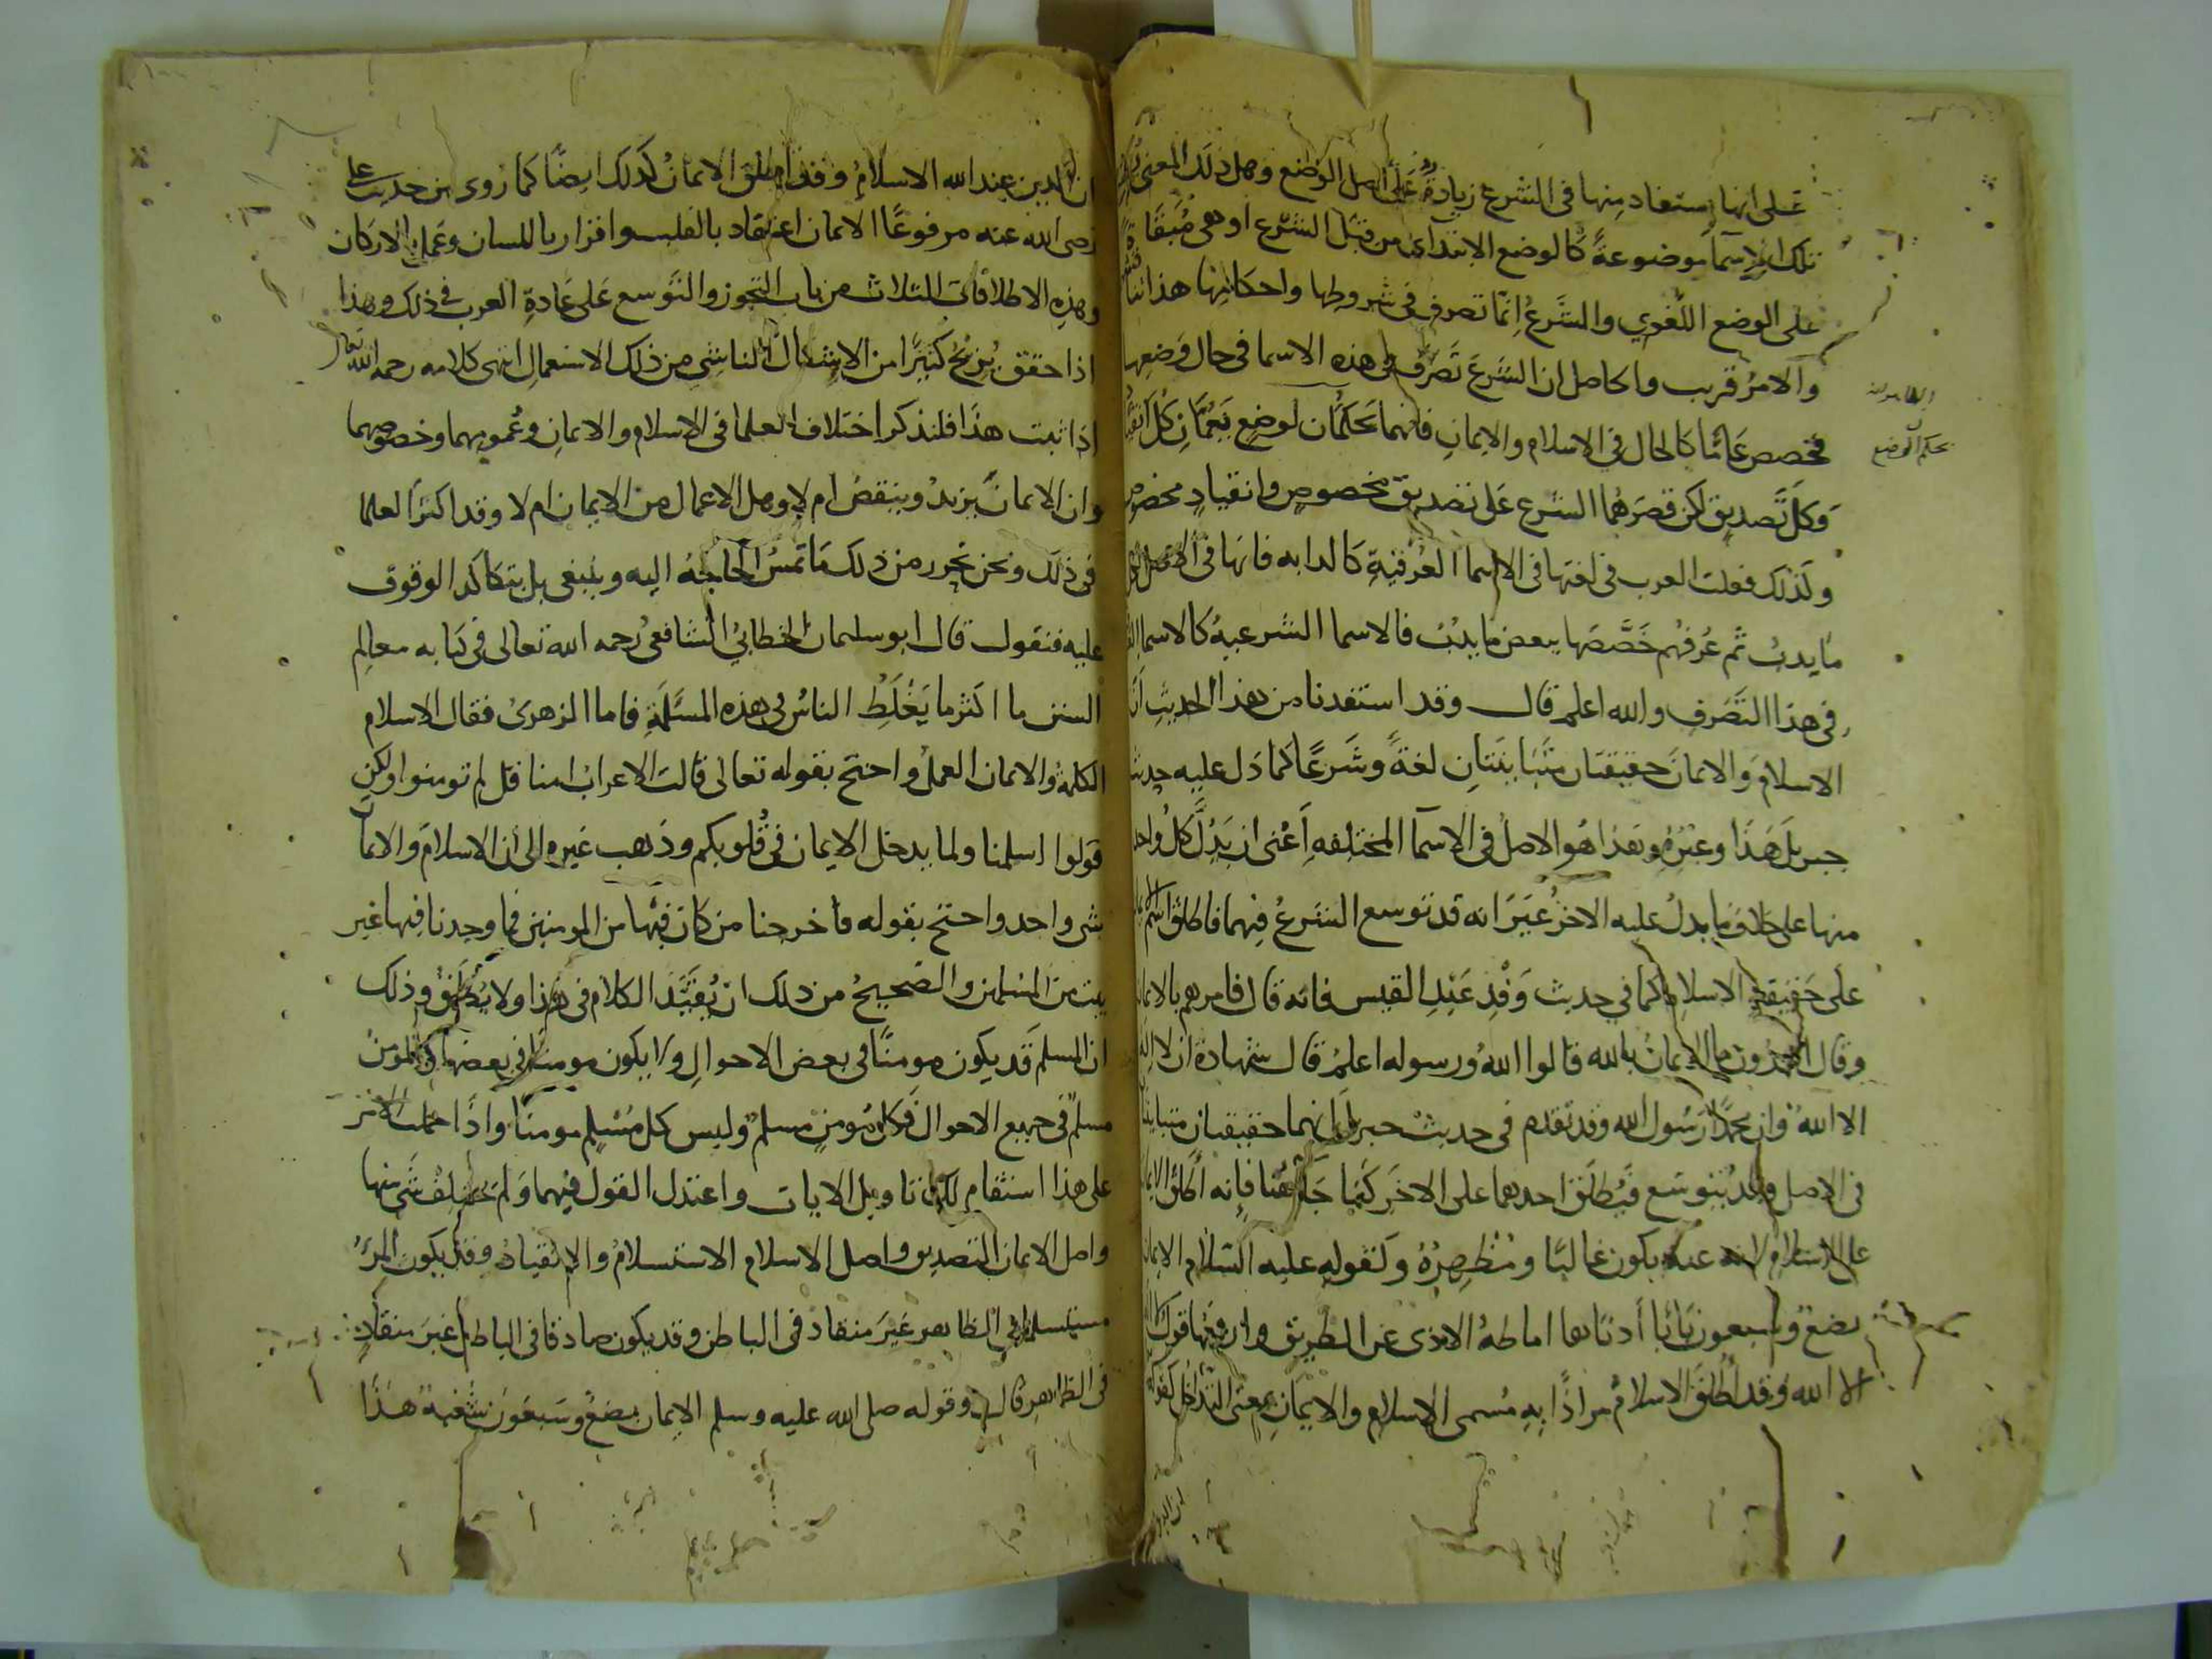 على انها يستفاد منها في الشرع زيادةٌ على اصل الوضع وهل ذلك المعنى
تلك الاسما موضوعةً كالوضع الابتداى من قبل الشرع او هى مُبَقَاة
على الوضع اللغوي والشرعُ اِنّما تصرف في شروطها واحكامها هذا
والامرُ قريب والحاصل ان الشرعَ تَصَرَّف في هذه الاسما في حال وَضعِها
فخصص عَامًّا كالحال في الاسلام والايمانِ فانهما بحكم الوضع يَعُمَّانِ كُلَ انقياد
وَكلَ تَصديق لكن قصَرَهُما الشرع على تصديق مخصوص وانقيادٍ مخصوص
ولذلك فعلت العرب في لغتها في الاسما العُرفيةِ كالدابه فانها في الاصل
ما يدبُ ثم عُرفُهم خَصَّصَها ببعض ما يدُبُ فالاسما الشرعيهُ كالاسما
في هذا التَصَرف والله اعلم قال وقد استفدنا من هذا الحديثِ اَنَّ
الاسلامَ وَالايمانَ حقيقتان متَبَاينَتانِ لغةً وشَرعًا كما دَل عليه حديث
جبريلَ هَذا وغيرُه وهذا هُو الاصلُ في الاسما المختلفه اَعنى ان يَدُلَّ كلُ واحد
منها على خلاف ما يدلُ عليه الاخرُ غيَرَ انه قد توسع الشرعُ فيهما فاطلق اسم
على حَقيقةِ الاسلامِ كما في حديث وَفْدِ عَبْدِ القيس فانه قال فامرهم بالايمان
وقال اتدرون ما الايمانُ بالله قالوا اللهُ ورسوله اعلمُ قال شهادة ان لا اله
الا اللهُ وان محمدًا رَسُول الله وقد تقدم في حديث جبريلَ انهما حقيقتان متباينتان
في الاصل وقد يُتوسَع فيُطلَقُ احدهما على الاخَرِ كَمَا جَا هُنا فاِنه اَطلق الايمان
على الاسلام لانه عنه يكون غالبًا ومُظهِرهُ وَكقوله عليه السّلام الايمان
بضعٌ وسبعون بَابًا أدناها اماطةُ الاذى عن الطريق وارفعها قول
الا الله وقد اُطلقَ الاسلامُ مرادًا بِهِ مُسمى الاسلام والايمانِ بمعنى التداخل كقوله
بحكم الوضع
ان الدين عند الله الاسلامُ وقد اُطلق الايمانُ كذلك ايضًا كما روى من حديث على
رضى الله عنه مرفوعًا الايمان اعتقاد بالقلب واقرار باللسان وعَمل بالاركان
وهذِه الاطلاقات الثلاث من باب التجوز والتَوسع على عَادةِ العرب في ذلك وهذا
اذا حقق يُزيحُ كثيرًا من الاِشكال الناشِى من ذلك الاستعمال انتهى كلامه رحمه الله تعالى
اذا ثبت هذَا فلنذكر اختلاف العلما في الاسلام والايمانِ وعُمومهما وخصوصهما
وان الايمانَ يزيدُ وينقصُ ام لا وهل الاعمال من الايمان ام لا وقد اكثر العلما
في ذلك ونحن نُحرر من ذلك مَا تمسُ الحاجةُ اليه وينبغى بل يتاكد الوقوف
عليه فنقول قال ابو سليمان الخطابيُ الشافعىُ رحمه الله تعالى في كتابه معالِم
السنن ما اكثر ما يَغْلَطُ الناسُ في هذه المسئلةِ فاما الزهرىُ فقال الاسلام
الكلمةُ والايمان العملُ واحتج بقوله تعالى قالت الاعرابُ امنا قل لم تومنوا ولكن
قولوا اسلمنا ولما يدخل الايمان في قُلوبكم وذهب غيره الى ان الاسلامَ والايمانَ
شى واحد واحتج بقوله فاخرجنا من كان فيها من المومنين فما وجدنا فيها غير
بيت من المسلمين والصَّحيحُ من ذلك ان يُقَيَّد الكلام في هذا ولا يُطلَقُ وذلك
ان المسلم قَد يكون مومنًا في بعض الاحوالِ ولا يكون مومنًا في بعضها والمومنُ
مسلمٌ في جميع الاحوال فكل مُومنٍ مسلمٌ وليس كل مُسْلمٍ مومنًا واذًا حملت الامر
على هذا استقام لك تاويل الايات واعتدل القول فيهما وَلم يختلف شى منها
واصل الايمان التصديق واصل الاسلام الاستسلامُ والانقيادُ وقد يكون المرءُ
مستسلمًا في الظاهر غيرَ منقاد في الباطن وقد يكون صادقا في الباطن غيرَ منقادٍ
في الظاهرِ قال وقوله صلى الله عليه وسلم الايمان بضعٌ وسَبعَونَ شُعْبَةً هَذَا